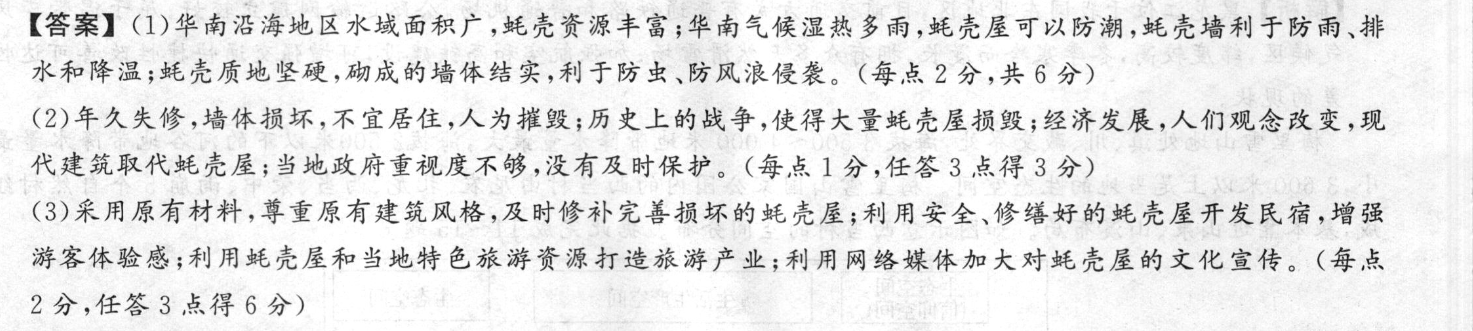 【答案】(1)华南沿海地区水域面积广,蚝壳资源丰富;华南气候湿热多雨,蚝壳屋可以防潮,蚝壳墙利于防雨、排
水和降温;蚝壳质地坚硬,砌成的墙体结实,利于防虫、防风浪侵袭。(每点2分,共6分)
(2)年久失修,墙体损坏,不宜居住,人为摧毁;历史上的战争,使得大量蚝壳屋损毁;经济发展,人们观念改变,现
代建筑取代蚝壳屋;当地政府重视度不够,没有及时保护。(每点1分,任答3点得3分)
(3)采用原有材料,尊重原有建筑风格,及时修补完善损坏的蚝壳屋;利用安全、修缮好的蚝壳屋开发民宿,增强
游客体验感;利用蚝壳屋和当地特色旅游资源打造旅游产业;利用网络媒体加大对蚝壳屋的文化宣传。(每点
2分,任答3点得6分)